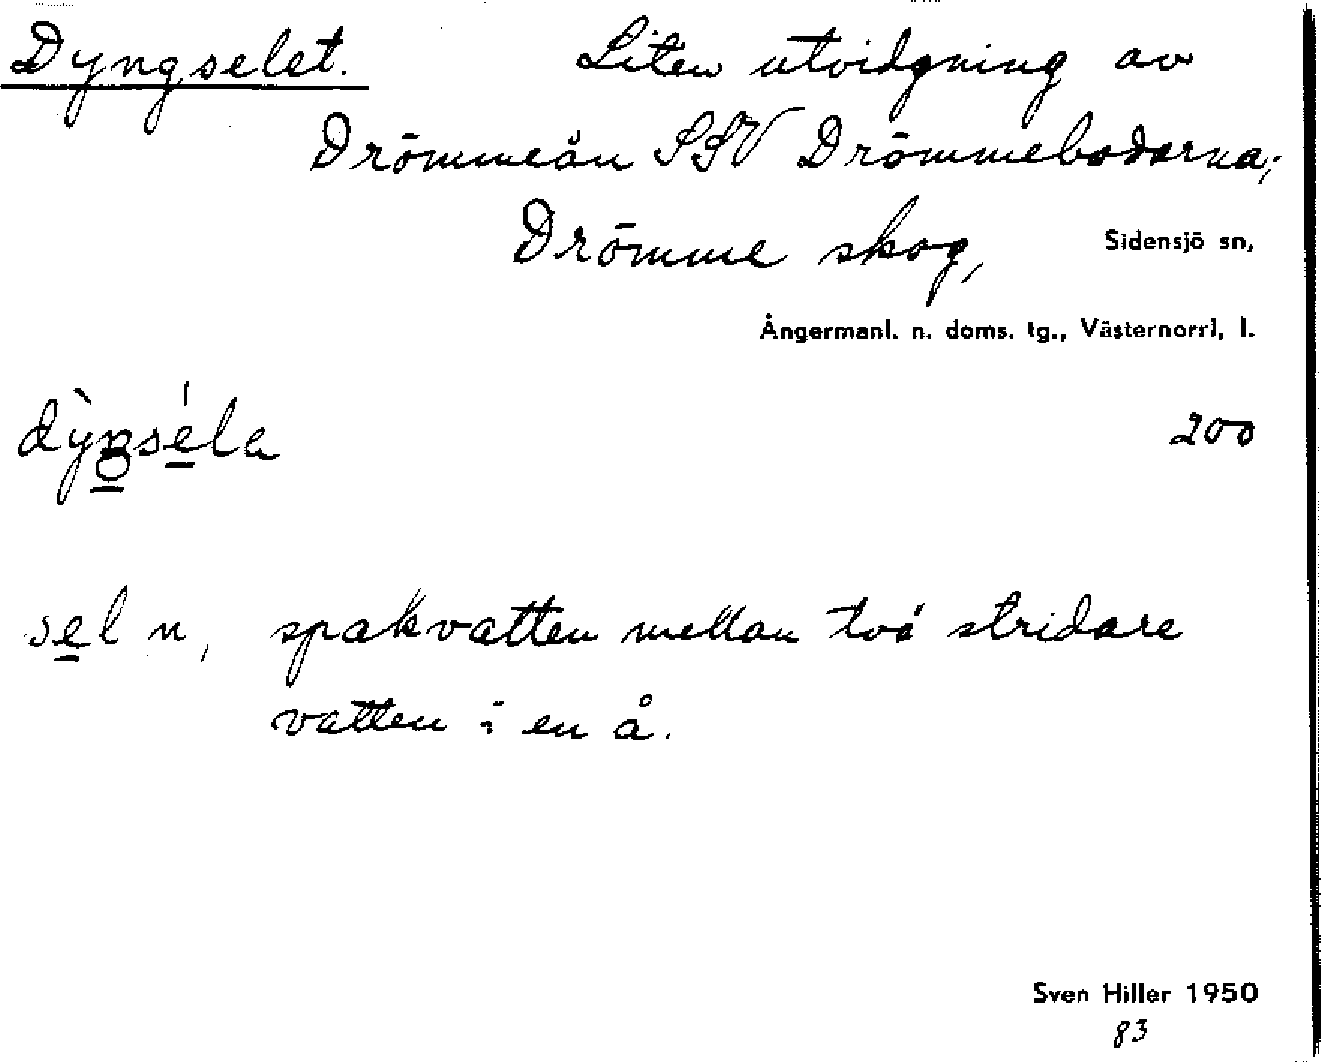 Dyngselet. Liten utvidgning av
Drömmeån SSV Drömmebodarna;
Drömme skog, Sidensjö sn,
Ångermanl. n. doms. tg., Västernorrl, l.
200
sel n, spakvatten mellan två stridare
vatten i en å.
Sven Hiller 1950
83